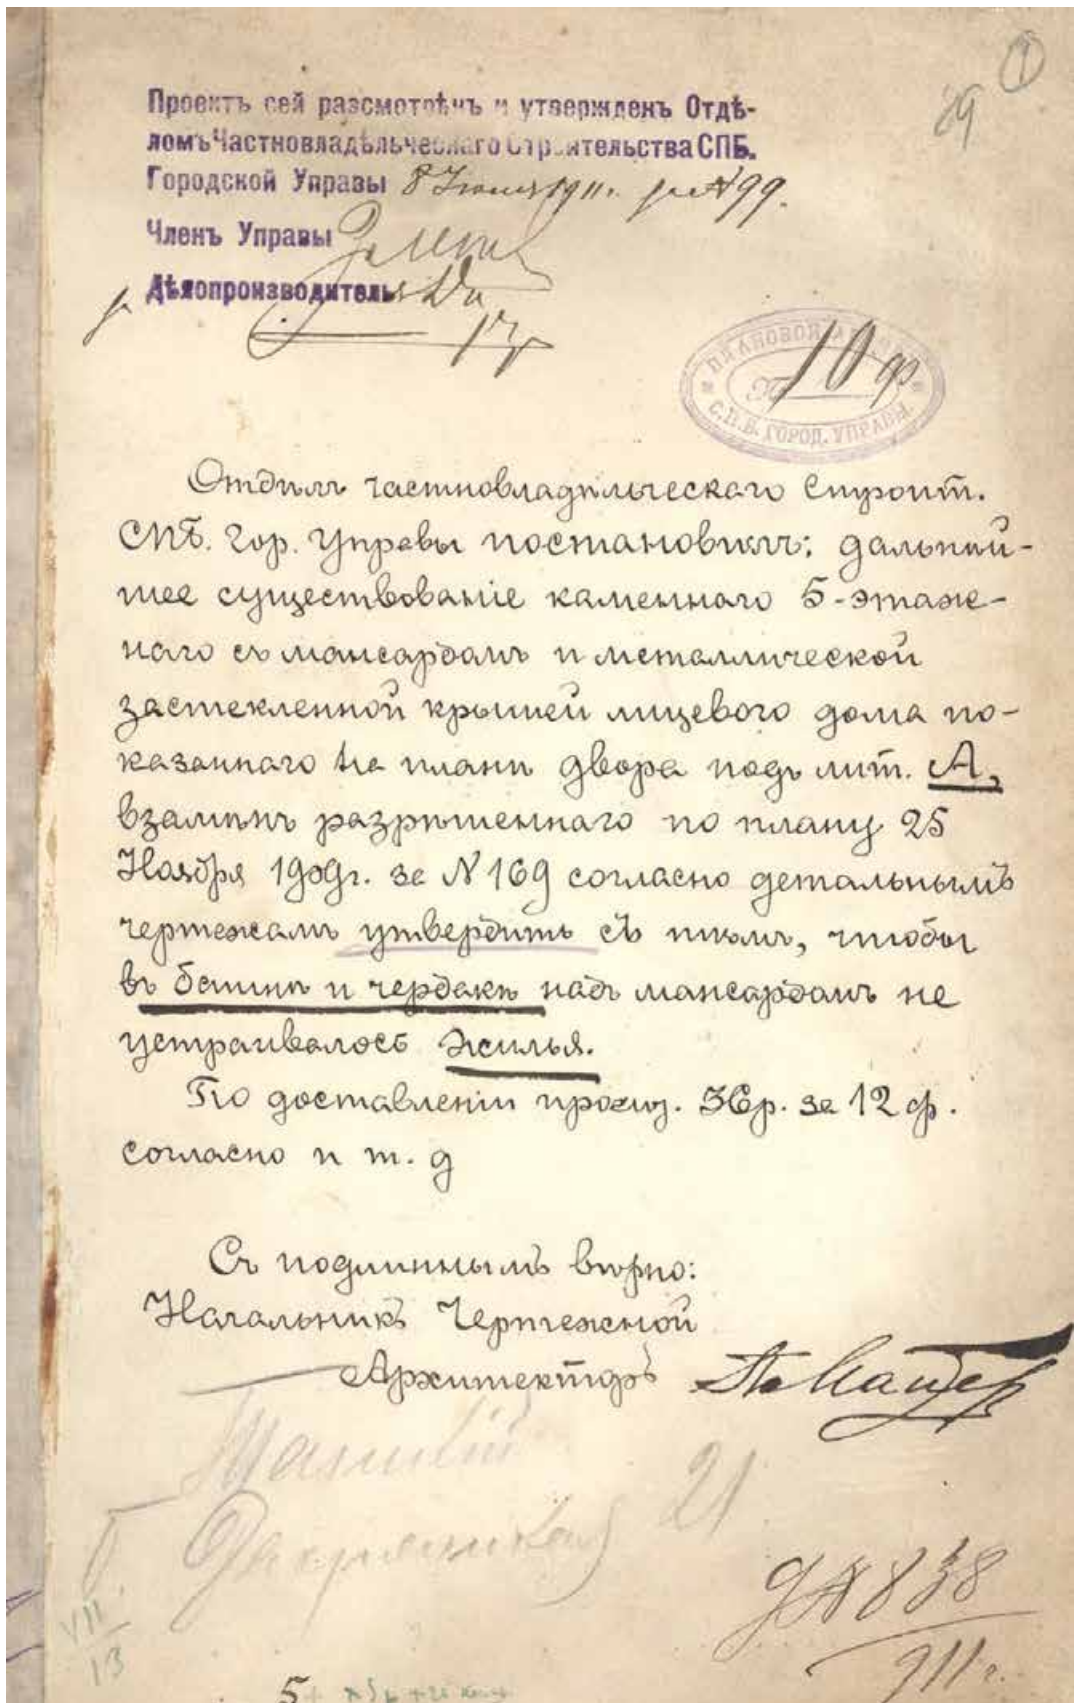 1
Проектъ сей разсмотрѣнъ и утвержденъ Отдѣ-
ломъ Частновладѣльческаго Строительства СПБ.
Городской Управы 8 Іюня 1911г. за № 99.
Членъ Управы
Дѣлопроизводитель
ПЛАНОВОЙ
№ 10 ф
С.П.Б. ГОРОД. УПРАВЫ.
Отдѣлъ частновладѣльческаго Строит.
СПБ. Гор. Управы постановилъ: дальнѣй-
шее существованіе каменнаго 5-этаж-
наго съ мансардамъ и металлической
застекленной крышей лицевого дома по-
казаннаго на планѣ двора подъ лит. А,
взамѣнъ разрѣшеннаго по плану 25
Ноября 1909г. за № 169 согласно детальнымъ
чертежамъ утвердить съ тѣмъ, чтобы
въ башнѣ и чердакѣ надъ мансардамъ не
устраивалось жилья.
По доставленіи 36р. за 12 ф.
согласно и т. д
Съ подлиннымъ вѣрно:
Начальникъ Чертежной
Архитекторъ
21
Д № 838
911 г.
VII
13
5